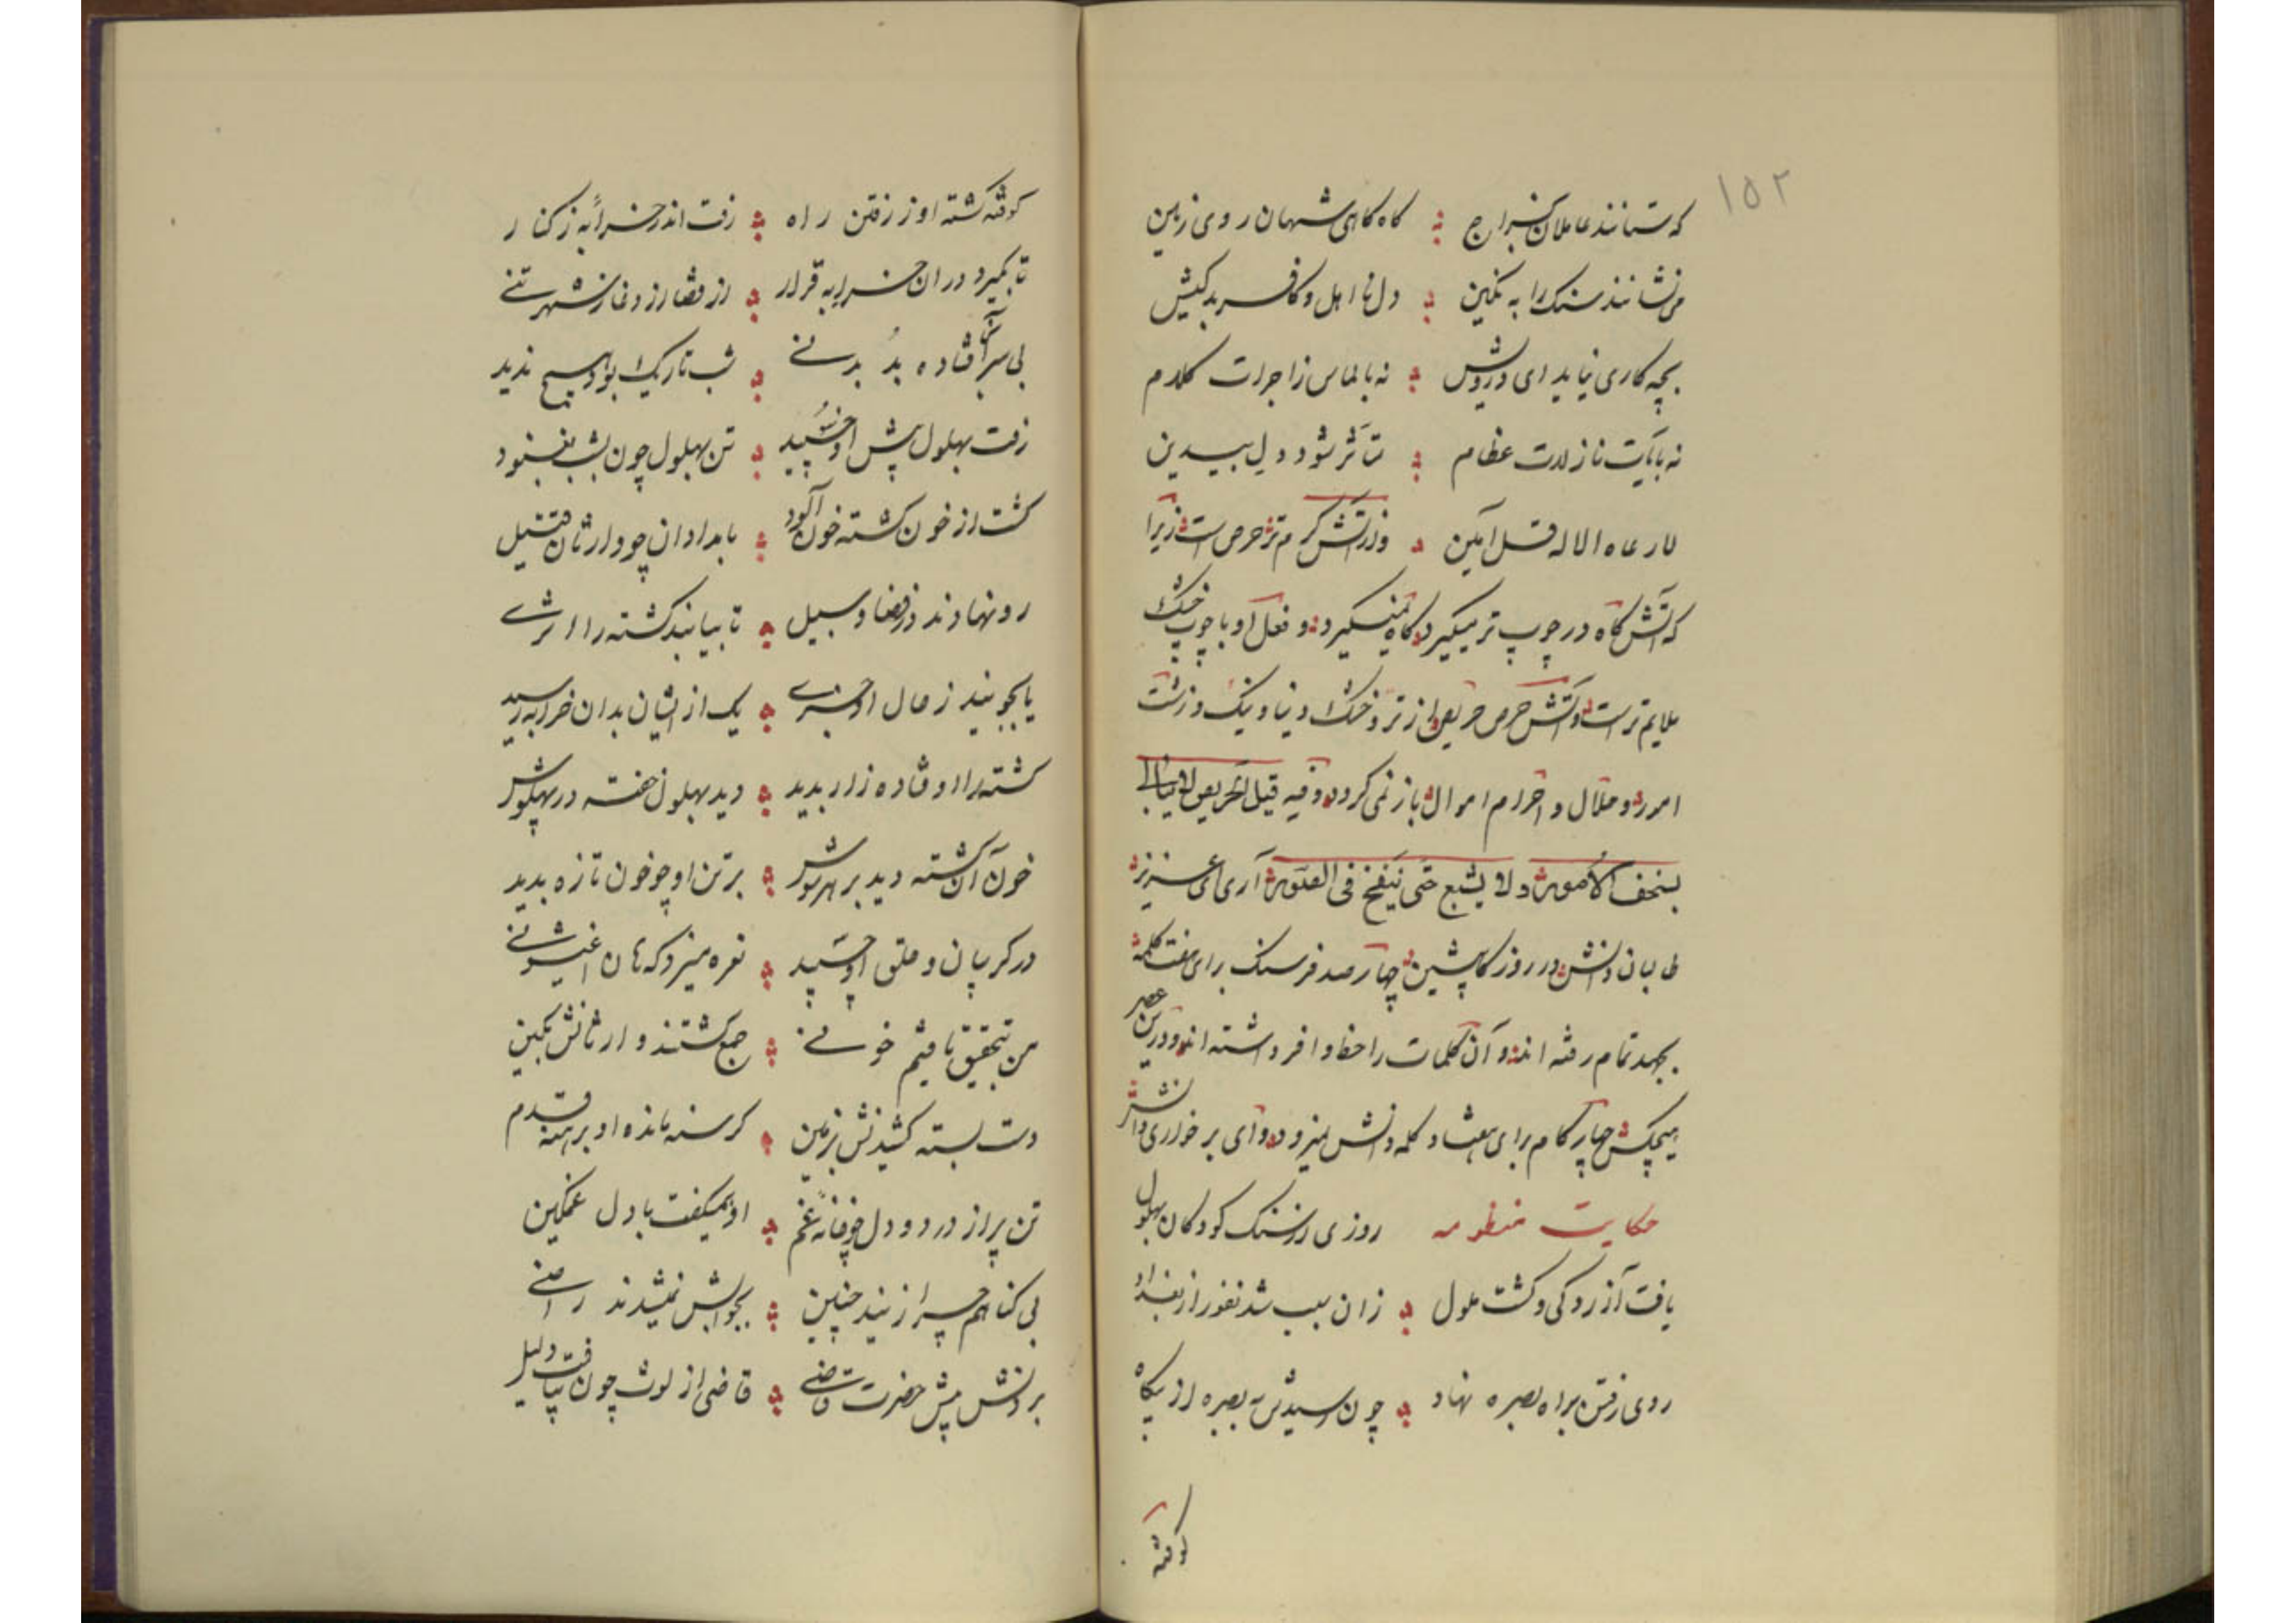 ۱۵۲
که ستانند عاملان خراج ؞ گاه گاهی شهان روی زمین
می نشانند سنک را به نکین ؞ دل نا اهل و کافر بدکیش
بچه کاری نیاید ای درویش ؞ نه بالماس زاجرات کلام
نه بآیات نازلات عظام ؞ متأثر شود دل بیدین
لا رعاه الاله قل آمین ؞ و از آتش کرم تر حرص است زیرا
که آتش گاه در چوپ تر میگیرد گاه نمیگیرد و فعل او با چوپ خشک
ملایم ترست و آتش حرص حریص از تر و خشک دنیا و نیک و زشت
امور و حلال و حرام اموال باز نمی گردد وفیه قیل الحریص لا یبالی
بسخف الأمور ولا یشبع حتی ینفخ فی الصور آری ای عزیز
طالبان دانش در روزگار پیشین چهار صد فرسنک برای هفت کلمه
بجهد تمام رفته اند و آن کلمات را حظ وافر داشته اند و درین عصر
هیچکس چهار کام برای هشتاد کلمه دانش نمیرود و وای بر خواری دانش
حکایت منظومه روزی از سنک کودکان بهلول
یافت آزردکی و کشت ملول ؞ زان سبب شد نفور از بغداد
روی رفتن براه بصره نهاد ؞ چون رسیدش به بصره از بیکاه
کوفته
کوفته کشته او ز رفتن راه ؞ رفت اندر خرابه ز کنار
تا بگیرد دران خرابه قرار ؞ از قضا رزد و غاز شهر تنی
بی سر آنجا فتاده بد بدنی ؞ شب تاریک بود هیچ ندید
رفت بهلول پیش او خسپید ؞ تن بهلول چون بشب بغنود
کشت از خون کشته خون آلود ؞ بامدادان چو وارثان قتیل
رو نهادند در فضا و سبیل ؞ تا بیابند کشته را اثری
یا بجویند ز حال او خبری ؞ یک از ایشان بدان خرابه رسید
کشته را اوفتاده زار بدید ؞ دید بهلول خفته در پهلوش
خون آن کشته دید بر هر سوش ؞ بر تن او چو خون تازه بدید
در کریبان و حلق او چسپید ؞ نعره میزد که هان اغیثونی
من بتحقیق یافتم خونی ؞ جمع کشتند وارثانش بکین
دست بسته کشیدنش بزمین ؞ کرسنه مانده او برهنه قدم
تن پر از درد و دل چو خانه غم ؞ او همیکفت با دل غمکین
بی کناهم چرا زنید چنین ؞ بجوابش نمیشدند راضی
بردنش پیش حضرت قاضی ؞ قاضی از لوث چون نیافت دلیل